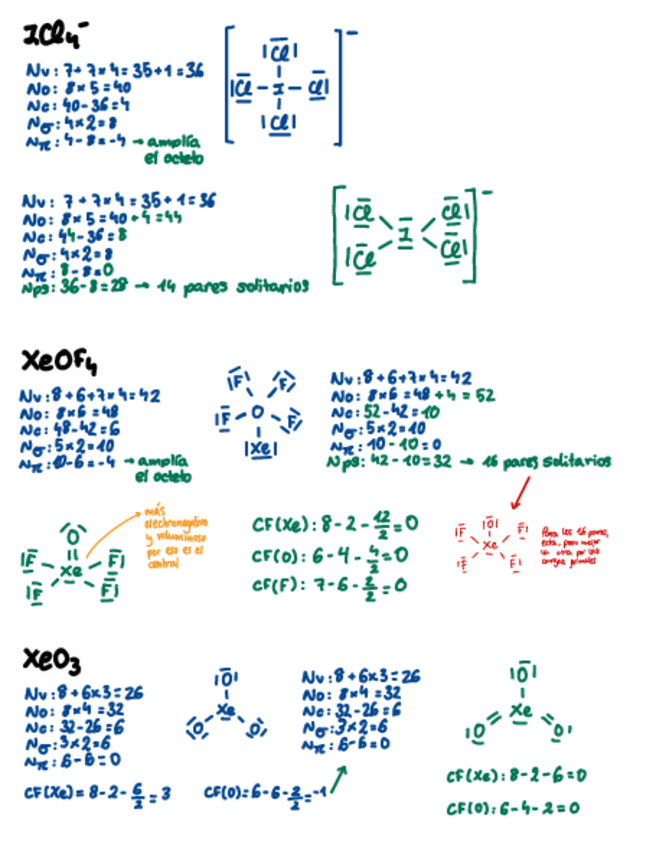 ICl₄⁻
Nv: 7+7×4=35+1=36
No: 8×5=40
Nc: 40-36=4
Nσ: 4×2=8
Nπ: 4-8=-4 → amplía
el octeto
|Cl|
|Cl - I - Cl|
|Cl|
−
Nv: 7+7×4=35+1=36
No: 8×5=40+4=44
Nc: 44-36=8
Nσ: 4×2=8
Nπ: 8-8=0
Nps: 36-8=28 → 14 pares solitarios
|Cl Cl|
I
|Cl Cl|
−
XeOF₄
Nv: 8+6+7×4=42
No: 8×6=48
Nc: 48-42=6
Nσ: 5×2=10
Nπ: 10-6=-4 → amplía
el octeto
|F| |F|
|F - O F|
|Xe|
Nv: 8+6+7×4=42
No: 8×6=48+4=52
Nc: 52-42=10
Nσ: 5×2=10
Nπ: 10-10=0
Nps: 42-10=32 → 16 pares solitarios
O
|F Xe F|
|F F|
más
electronegativo
y voluminoso
por eso es el
central
CF(Xe): 8-2-12/2=0
CF(O): 6-4-4/2=0
CF(F): 7-6-2/2=0
|O|
|F Xe F|
|F F|
Para los 16 pares,
esta, pero mejor
la otra por las
cargas formales
XeO₃
Nv: 8+6×3=26
No: 8×4=32
Nc: 32-26=6
Nσ: 3×2=6
Nπ: 6-6=0
CF(Xe)=8-2-6/2=3
CF(O)=6-6-2/2=-1
|O|
Xe
|O| |O|
Nv: 8+6×3=26
No: 8×4=32
Nc: 32-26=6
Nσ: 3×2=6
Nπ: 6-6=0
|O|
Xe
|O O|
CF(Xe): 8-2-6=0
CF(O): 6-4-2=0